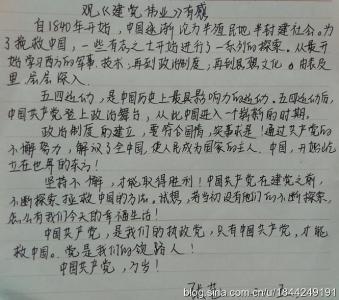 观《建党伟业》有感
自1840年开始，中国逐渐沦为半殖民地半封建社会。为
了挽救中国，一些有志之士开始进行了一系列的探索。从最开
始学习西方的军事、技术，再到政治制度，再到思想文化。由表及
里，层层深入。
五四运动，是中国历史上最具影响力的运动。五四运动后，
中国共产党登上政治舞台，从此中国进入一个崭新的时期。
政治制度的建立，要符合国情，实事求是！通过共产党的
不懈努力，解放了全中国，使人民成为国家的主人。中国，开始屹
立在世界的东方！
坚持不懈，才能取得胜利！中国共产党在建党之前，
不断探索拯救中国的方法。试想，若当初没有他们的不断探索，
怎么有我们今天的幸福生活！
中国共产党，是我们的执政党，只有中国共产党，才能
救中国。党是我们的领路人！
中国共产党，力量！
blog.sina.com.cn/u/1844249191